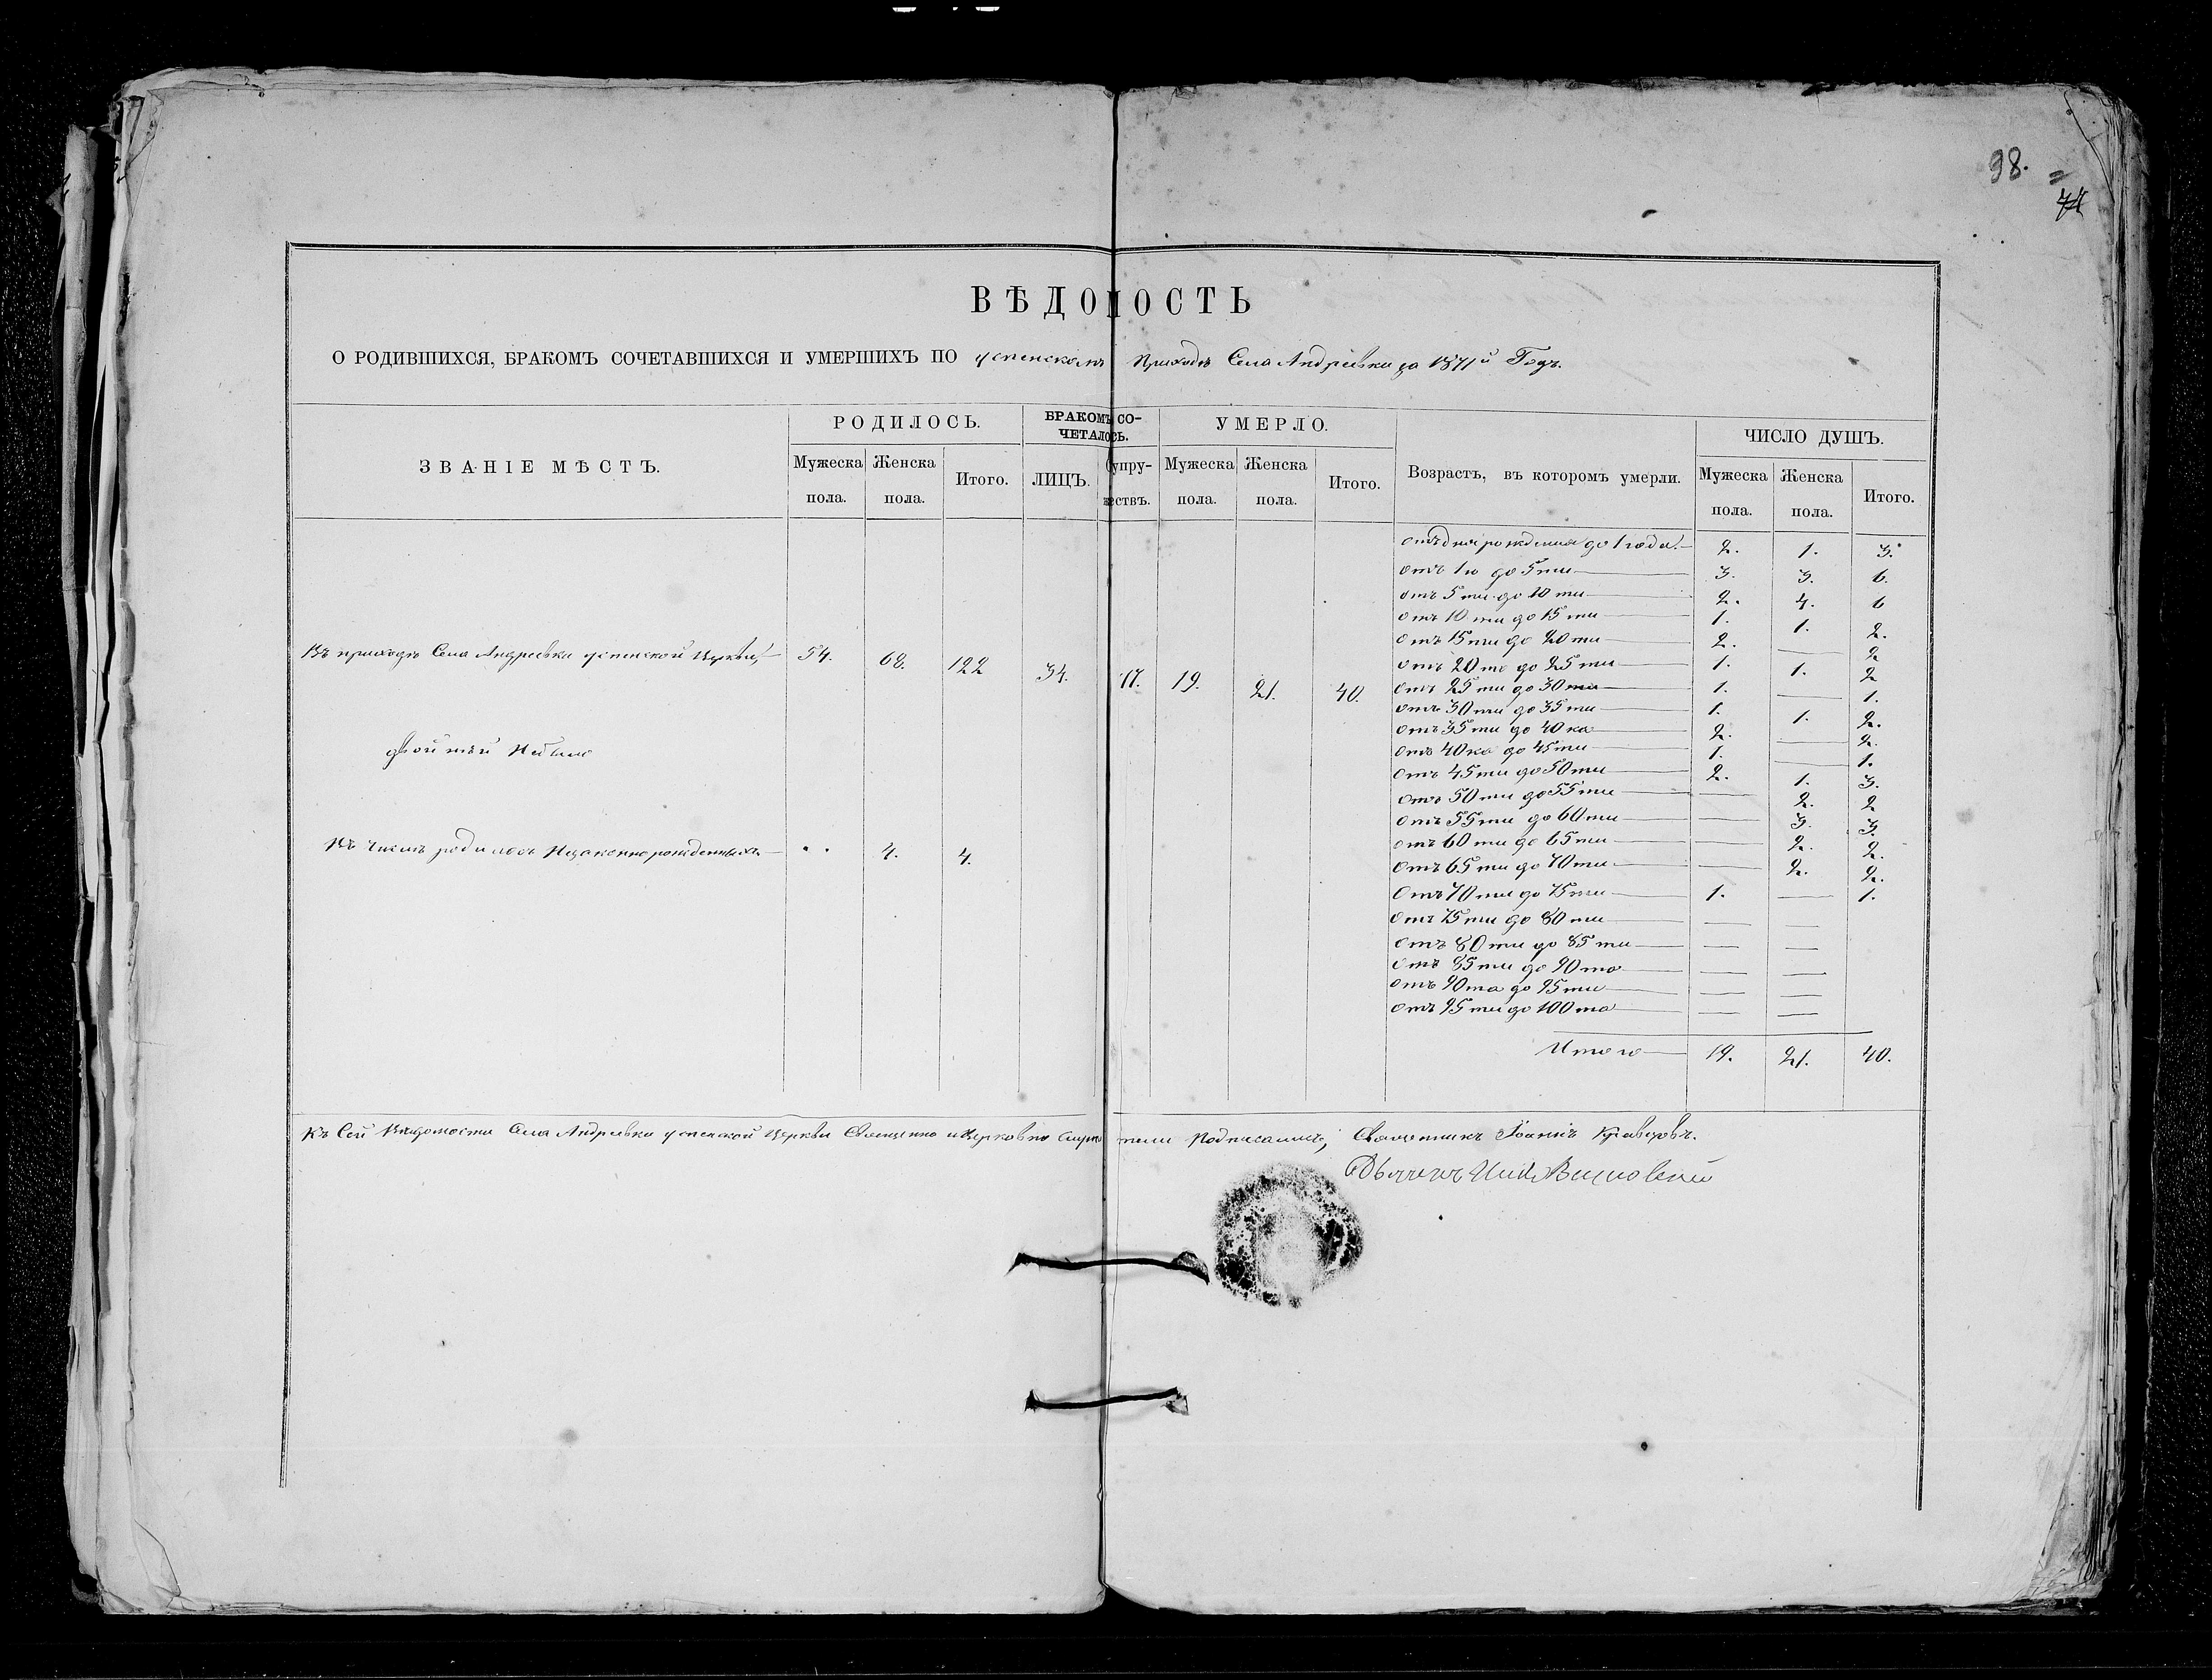 98.
74
ВѢДОМОСТЬ
О РОДИВШИХСЯ, БРАКОМЪ СОЧЕТАВШИХСЯ И УМЕРШИХЪ ПО успенскомъ приходѣ Села Андреевки за 1871й Годъ.
ЗВАНІЕ МѢСТЪ. РОДИЛОСЬ. БРАКОМЪ СО-ЧЕТАЛОСЬ. УМЕРЛО. Возрастъ, въ которомъ умерли. ЧИСЛО ДУШЪ.
Мужеска пола. Женска пола. Итого. ЛИЦЪ. Супру-жествъ. Мужеска пола. Женска пола. Итого. Мужеска пола. Женска пола. Итого.
Въ приходѣ Села Андреевки успенской Церкви 54. 68. 122 34. 17. 19. 21. 40.
двой
Въ числѣ родилось Незаконнорожденныхъ 4. 4.
отъ дня рожденія до 1 года. 2. 1. 3.
отъ 1го до 5ти 3. 3. 6.
отъ 5ти до 10ти 2. 4. 6
отъ 10ти до 15ти 1. 1. 2.
отъ 15ти до 20ти 2. — 2
отъ 20ти до 25ти 1. 1. 2
отъ 25ти до 30ти 1. — 1.
отъ 30ти до 35ти 1. 1. 2.
отъ 35ти до 40ка 2. — 2.
отъ 40ка до 45ти 1. — 1.
отъ 45ти до 50ти 2. 1. 3.
отъ 50ти до 55ти — 2. 2
отъ 55ти до 60ти — 3. 3.
отъ 60ти до 65ти — 2. 2.
отъ 65ти до 70ти — 2. 2.
отъ 70ти до 75ти 1. — 1.
отъ 75ти до 80ти — —
отъ 80ти до 85ти — —
отъ 85ти до 90то — —
отъ 90та до 95ти — —
отъ 95ти до 100та — —
Итого 19. 21. 40.
Къ Сей Вѣдомости Села Андреевки успенской Церкви Священно и Церковно Служители Подписались, Священникъ Іоаннъ Кравцовъ.
Дьячекъ